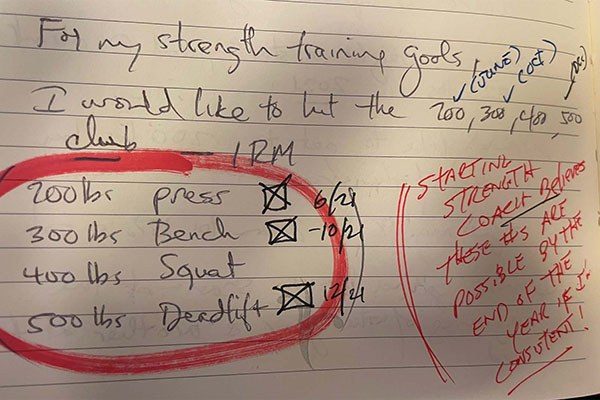 For my strength training goals,
(JUNE) (OCT) (DEC)
I would like to hit the 200, 300, 400, 500
club 1RM
200lbs press 6/21
300lbs Bench -10/21
400lbs Squat
500lbs Deadlift 12/21
STARTING
STRENGTH
COACH BELIEVES
THESE #S ARE
POSSIBLE BY THE
END OF THE
YEAR IF I'M
CONSISTENT!